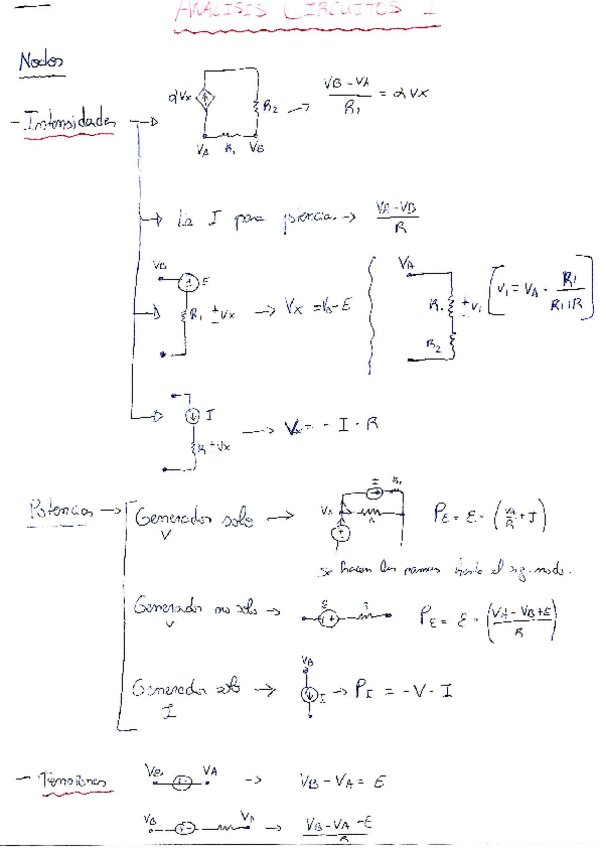 ANALISIS CIRCUITOS I
Nodos
- Intensidades
αVx R2 → (VB - VA)/R1 = αVx
VA R1 VB
La I para potencia → (VA - VB)/R
VB E R1 + Vx - → Vx = VB - E
VA R1 + V1 - R2 [V1 = VA · R1/(R1+R)]
I R + Vx → Vx = - I · R
Potencias →
Generador solo V → VA E R1 R PE = E · (VA/R + I)
se hacen los ramas hasta el sig. nodo.
Generador no solo V → E R PE = E · ((VA - VB + E)/R)
Generador solo I → VB I → PI = - V · I
- Tensiones VB VA → VB - VA = E
VB VA → (VB - VA - E)/R